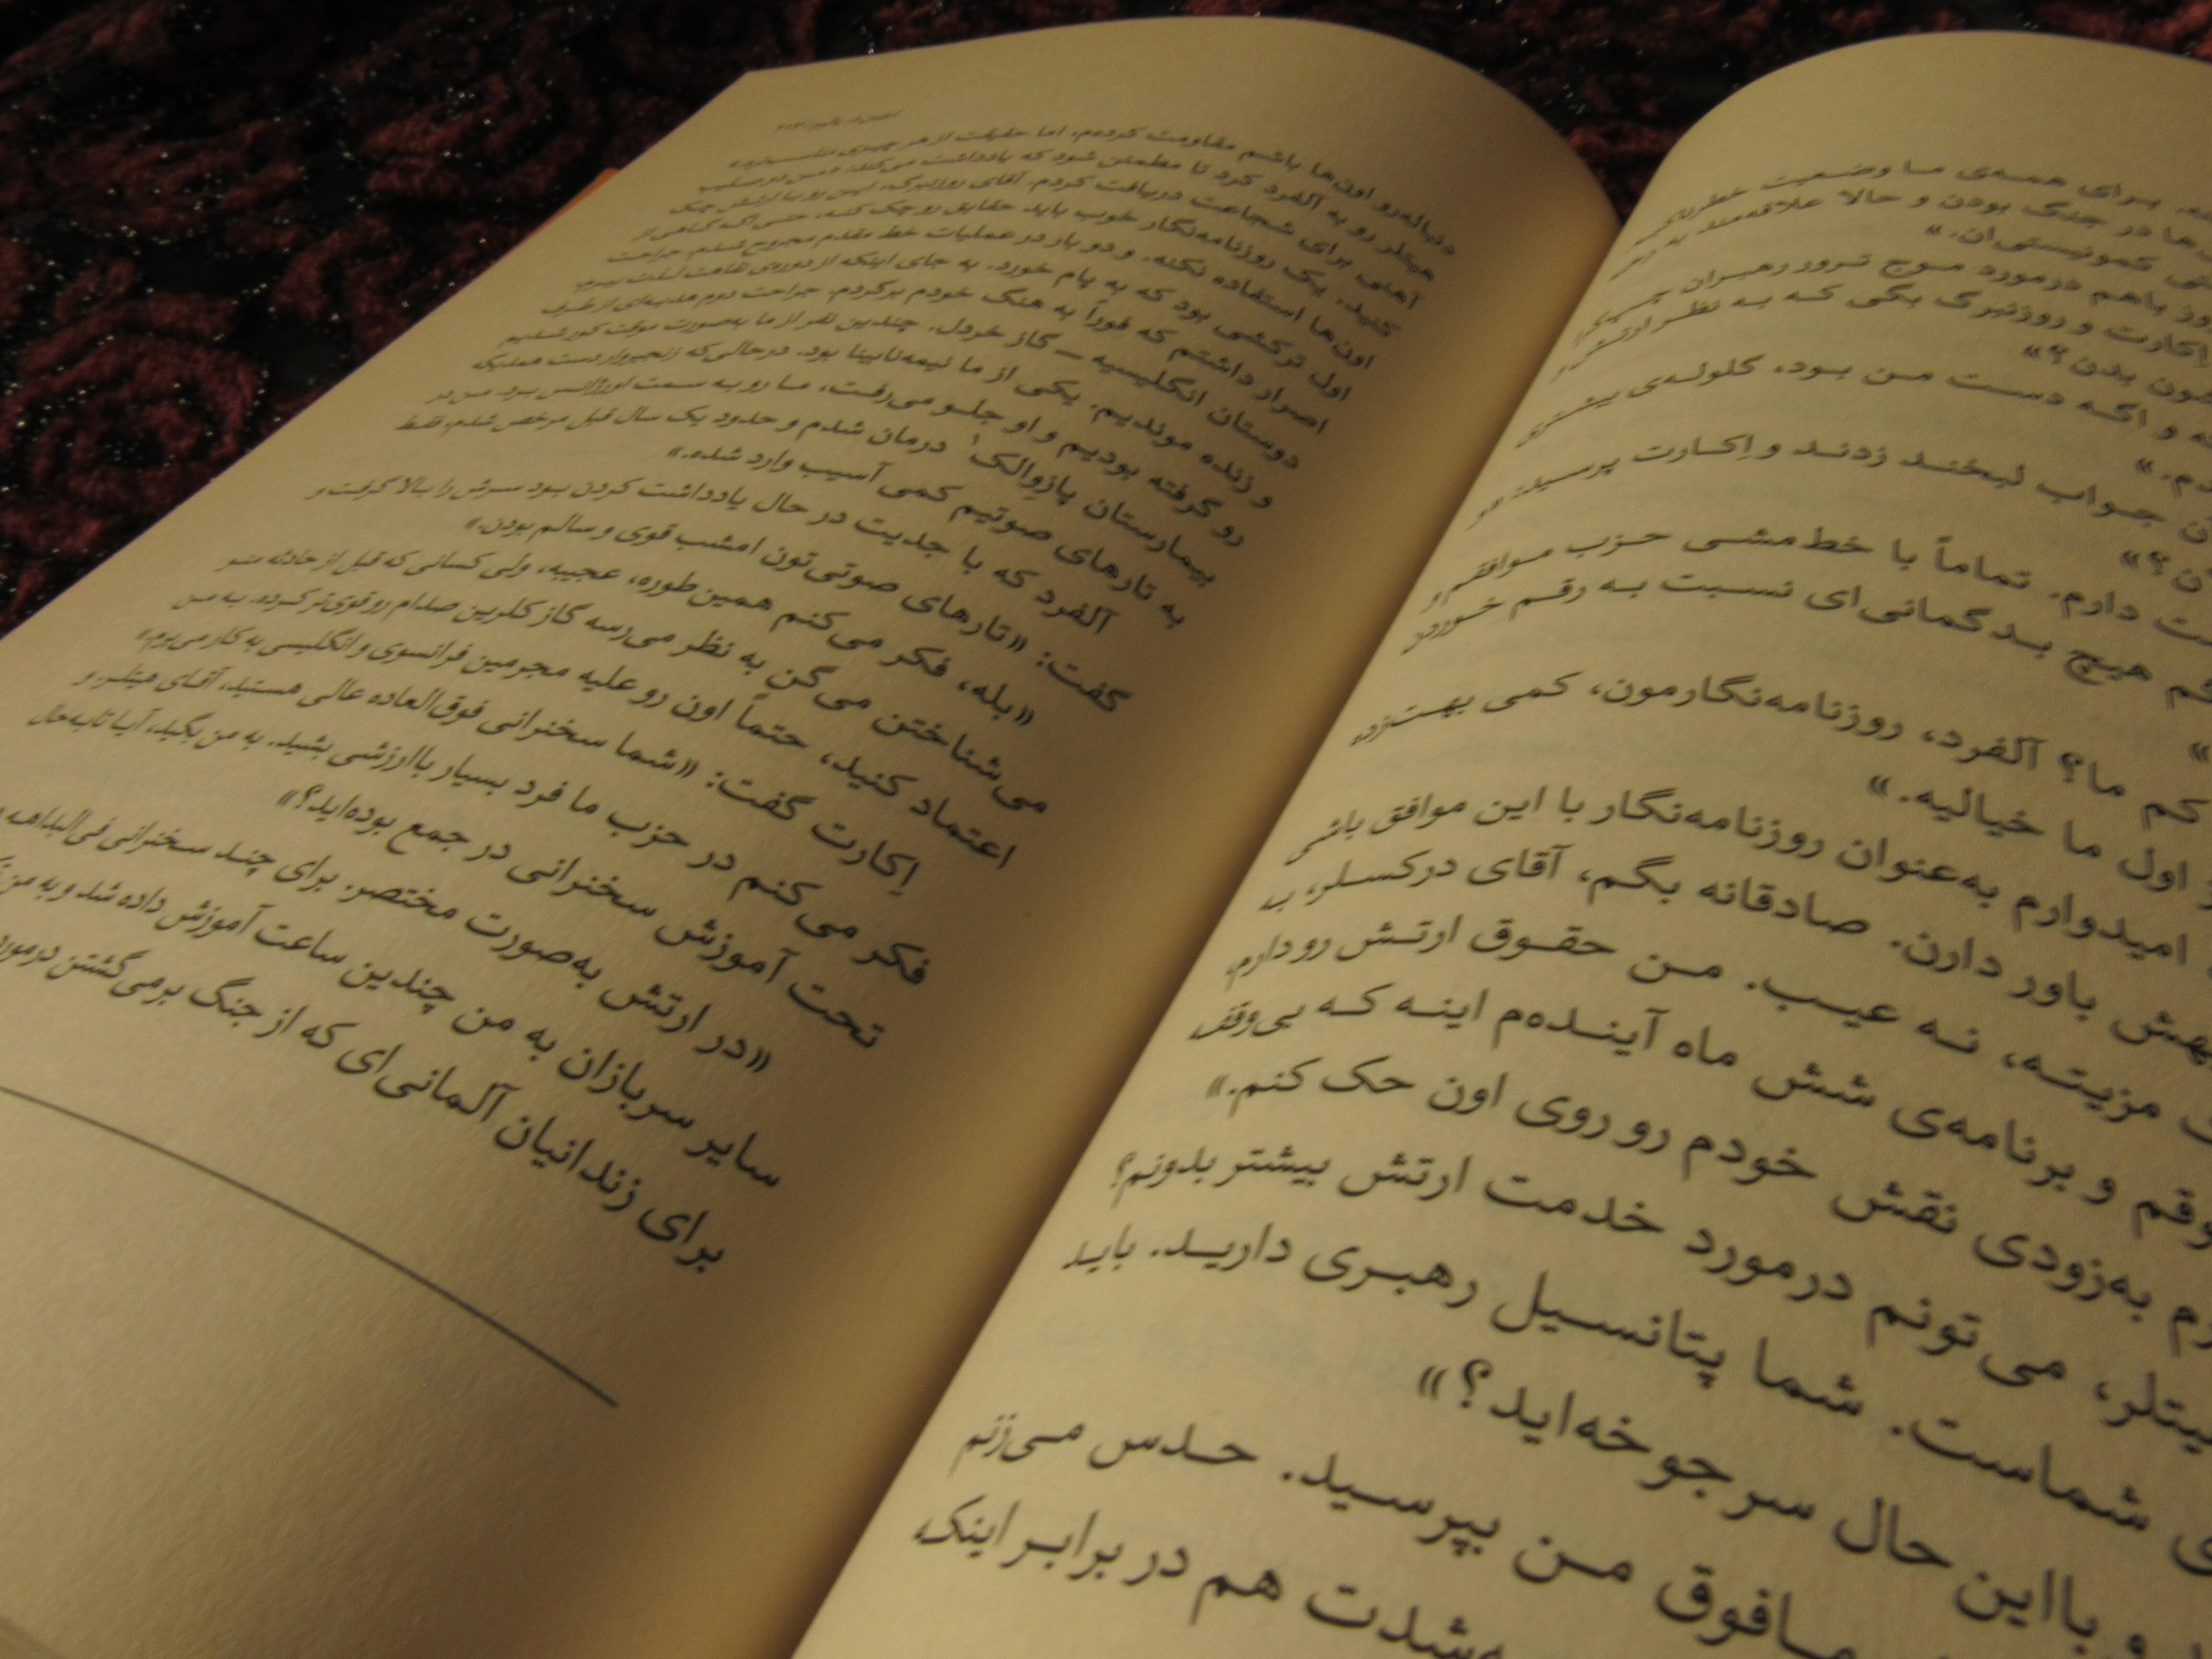 برای همه‌ی ما وضعیت
ها در جنگ بودن و حالا علاقه‌مند به
کمونیستی‌ان.»
باهم درمورد موج ترور رهبران
اکارت و روزنبرگ یکی که به نظر
بدن؟»
و اگه دست من بود، گلوله‌ی بیشتری
جواب لبخند زدند و اِکارت پرسید:
دارم. تماماً با خط‌مشی حزب موافقم و
هیچ بدگمانی‌ای نسبت به رقم
کم ما؟ آلفرد، روزنامه‌نگارمون، کمی بهت
اول ما خیالیه.»
امیدوارم به‌عنوان روزنامه‌نگار با این موافق باشی
بهش باور دارن. صادقانه بگم، آقای درکسلر،
مزیته، نه عیب. من حقوق ارتش رو دارم،
و برنامه‌ی شش ماه آینده‌م اینه که بی‌وقفه
به‌زودی نقش خودم رو روی اون حک کنم.»
می‌تونم درمورد خدمت ارتش بیشتر بدونم؟
شماست. شما پتانسیل رهبری دارید. باید
و بااین حال سرجوخه‌اید؟»
مافوق من بپرسید. حدس می‌زنم
هم در برابر اینکه
دنباله‌رو اون‌ها باشم مقاومت کرده‌م، اما حقیقت از هر چیزی
هیتلر رو به آلفرد کرد تا مطمئن شود که یادداشت می‌کند:
آهنی برای شجاعت دریافت کردم. آقای روزنبرگ، این رو
کنید. یک روزنامه‌نگار خوب باید حقایق رو چک کنه، حتی اگه گاهی از
اون‌ها استفاده نکنه. و دو بار در عملیات خط مقدم مجروح شدم. جراحت
اول ترکشی بود که به پام خورد. به جای اینکه از دوره‌ی نقاهت لذت ببرم،
اصرار داشتم که فوراً به هنگ خودم برگردم. جراحت دوم هدیه‌ای از طرف
دوستان انگلیسیه – گاز خردل. چندین نفر از ما به‌صورت موقت کور شدیم
و زنده موندیم. یکی از ما نیمه‌نابینا بود. درحالی‌که زنجیروار دست همدیگه
رو گرفته بودیم و او جلو می‌رفت، ما رو به سمت اورژانس برد. من در
بیمارستان پازوالک۱ درمان شدم و حدود یک سال قبل مرخص شدم، فقط
به تارهای صوتیم کمی آسیب وارد شده.»
آلفرد که با جدیت در حال یادداشت کردن بود سرش را بالا گرفت و
گفت: «تارهای صوتی‌تون امشب قوی و سالم بودن.»
«بله، فکر می‌کنم همین‌طوره، عجیبه، ولی کسانی که قبل از حادثه منو
می‌شناختن می‌گن به نظر می‌رسه گاز کلرین صدام رو قوی‌تر کرده. به من
اعتماد کنید، حتماً اون رو علیه مجرمین فرانسوی و انگلیسی به کار می‌برم.»
اِکارت گفت: «شما سخنرانی فوق‌العاده عالی هستید، آقای هیتلر، و
فکر می‌کنم در حزب ما فرد بسیار باارزشی بشید. به من بگید، آیا تابه‌حال
تحت آموزش سخنرانی در جمع بوده‌اید؟»
«در ارتش به‌صورت مختصر. برای چند سخنرانی فی‌البداهه
سایر سربازان به من چندین ساعت آموزش داده شد و به من
برای زندانیان آلمانی‌ای که از جنگ برمی‌گشتن درمورد